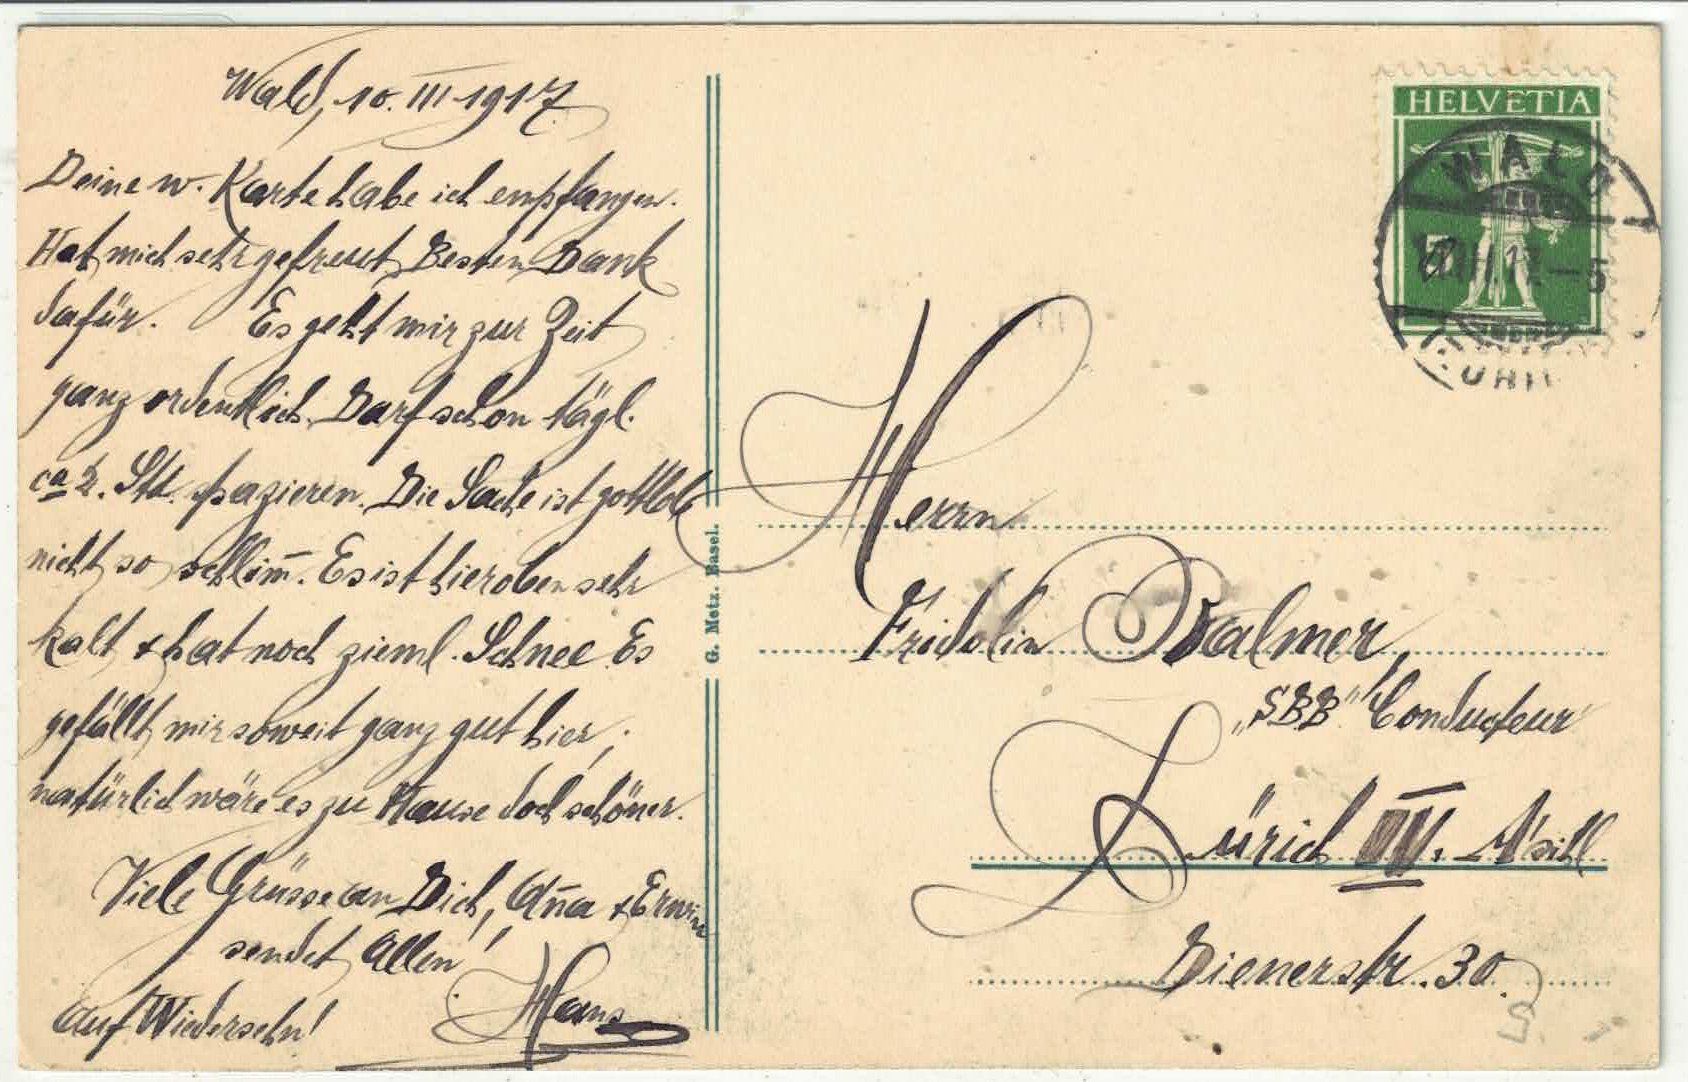 Wald, 10. III 1917.
Deine w. Karte habe ich empfangen.
Hat mich sehr gefreut, Besten Dank
dafür. Es geht mir zur Zeit
ganz ordentlich. Darf schon tägl.
ca 2. Std. spazieren. Die Sache ist gottlob
nicht so schlim̅. Es ist hieroben sehr
kalt & hat noch zieml. Schnee. Es
gefällt mir soweit ganz gut hier,
natürlich wäre es zu Hause doch schöner.
Viele Grüsse an Dich, An̅a & Erwin
sendet Allen!
Hans
Auf Wiedersehn!
G. Metz. Basel.
HELVETIA
5
WALD
Herrn
Fridolin Balmer,
„SBB" Conducteur
Zürich III. A'sihl
Dienerstr. 30.